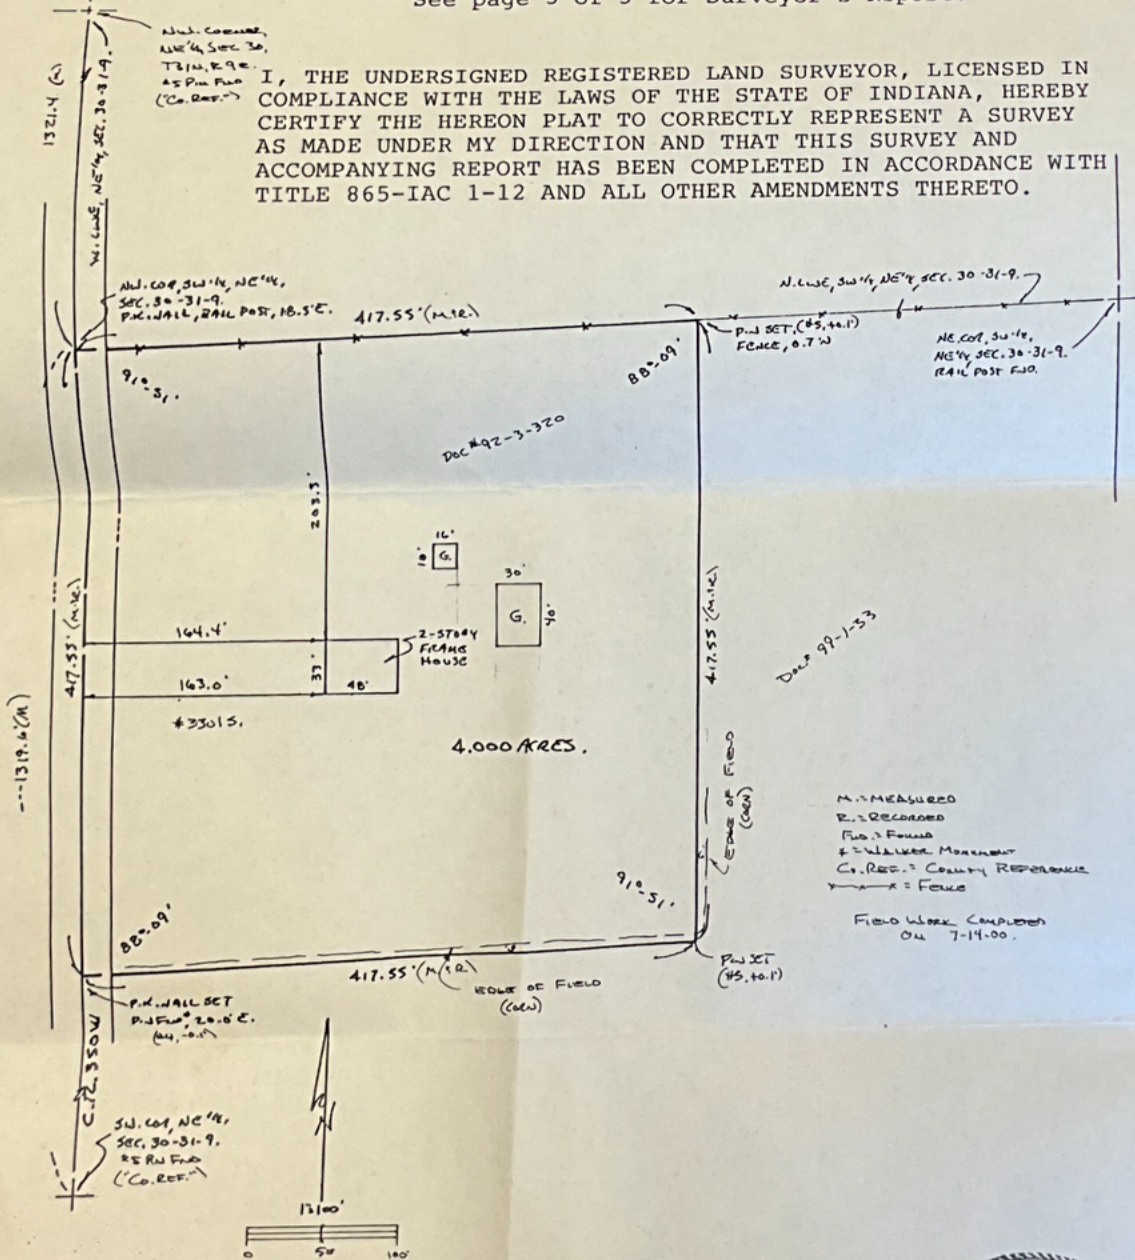 See page 3 of 3 for Surveyor's Report
NW. CORNER,
NE¼, SEC 30,
T31N, R9E.
#5 PIN FND
("CO. REF.")
1321.4 (M)
W. LINE, NE¼, SEC. 30-31-9.
I, THE UNDERSIGNED REGISTERED LAND SURVEYOR, LICENSED IN
COMPLIANCE WITH THE LAWS OF THE STATE OF INDIANA, HEREBY
CERTIFY THE HEREON PLAT TO CORRECTLY REPRESENT A SURVEY
AS MADE UNDER MY DIRECTION AND THAT THIS SURVEY AND
ACCOMPANYING REPORT HAS BEEN COMPLETED IN ACCORDANCE WITH
TITLE 865-IAC 1-12 AND ALL OTHER AMENDMENTS THERETO.
NW. COR, SW¼, NE¼,
SEC. 30-31-9.
P.K. NAIL, RAIL POST, 18.5'E.
417.55' (M.&R.)
N. LINE, SW¼, NE¼, SEC. 30-31-9.
PIN SET, (#5, +0.1')
FENCE, 0.7'N
NE. COR, SW¼,
NE¼, SEC. 30-31-9.
RAIL POST FND.
91°-51'
88°-09'
DOC #92-3-320
203.3'
16'
G.
30'
G.
40'
417.55' (M.&R.)
417.55' (M.&R.)
DOC# 99-1-33
164.4'
2-STORY
FRAME
HOUSE
33'
163.0'
48'
#3301 S.
4.000 ACRES.
---1319.6'(M)
EDGE OF FIELD
(CORN)
M. = MEASURED
R. = RECORDED
FND. = FOUND
* = WALKER MONUMENT
CO. REF. = COUNTY REFERENCE
x—x—x = FENCE
FIELD WORK COMPLETED
ON 7-14-00.
91°-51'
88°-09'
417.55' (M.&R.)
EDGE OF FIELD
(CORN)
PIN SET
(#5, +0.1')
P.K. NAIL SET
PIN FND* 20.0'E.
C.R. 350W
SW. COR, NE¼,
SEC. 30-31-9.
#5 PIN FND
("CO. REF.")
N
1"=100'
0 50 100'